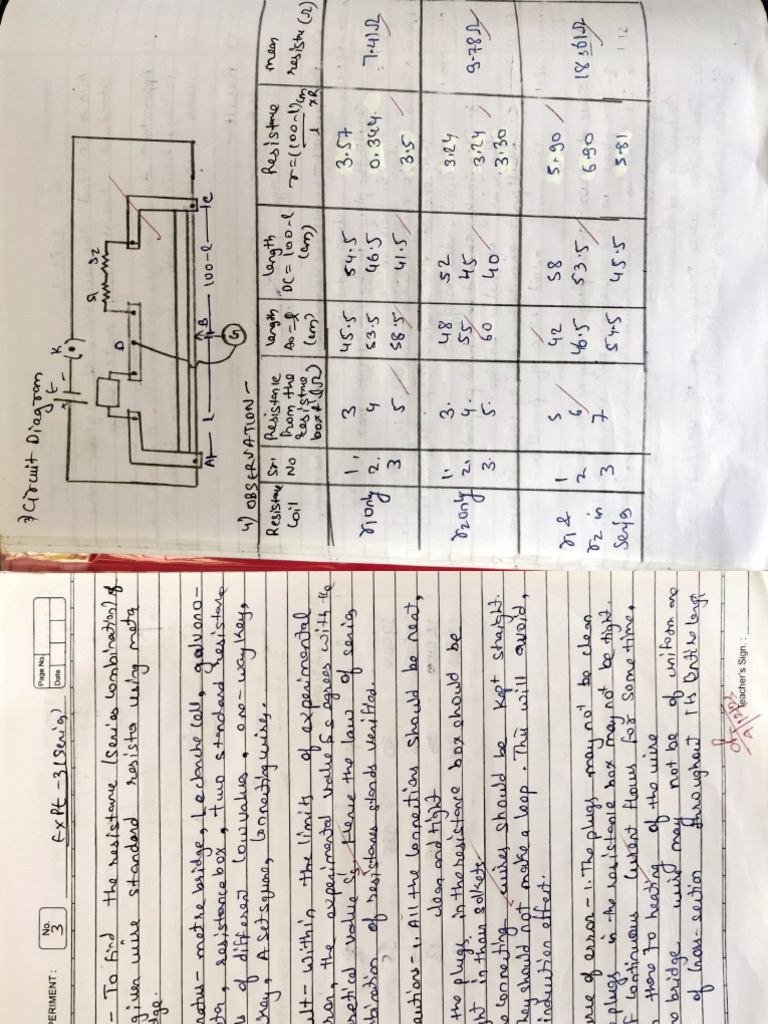 3) Circuit Diagram
E
K
r1 r2
D
G
A l B 100-l C
4) OBSERVATION -
Resistance Coil | Sr. No | Resistance from the resistance box R (Ω) | length AD = l (cm) | length DC = 100-l (cm) | Resistance r = (100-l)cm / l × R | mean resistance (Ω)
r1 only | 1. | 3 | 45.5 | 54.5 | 3.57 | 7.41Ω
2. | 4 | 53.5 | 46.5 | 0.344
3 | 5 | 58.5 | 41.5 | 3.5
r2 only | 1. | 3. | 48 | 52 | 3.24 | 9.78Ω
2. | 4. | 55 | 45 | 3.24
3. | 5. | 60 | 40 | 3.30
r1 & r2 in series | 1 | 5 | 42 | 58 | 5.90 | 18.61Ω
2 | 6 | 46.5 | 53.5 | 6.90
3 | 7 | 54.5 | 45.5 | 5.81
PERIMENT :
No. 3
Expt-3 (Series)
Page No.
Date
- To find the resistance (series combination) of
given wire standard resistor using meta
dge.
ratus- metre bridge, Leclanche cell, galvano-
ter, resistance box, two standard resistance
of different low values, one-way key,
key, A set square, Connecting wires.
ult- within the limits of experimental
ror, the experimental value agrees with the
retical value Hence the law of series
bination of resistances stands verified.
autions- 1. All the connections should be neat,
clean and tight
the plugs in the resistance box should be
ght in their sockets.
e connecting wires should be kept straight.
hey should not make a loop. This will avoid,
induction effect.
urce of error- 1. The plugs may not be clean
plugs in the resistance box may not be tight.
F continuous current flows for some time,
there to heating of the wire
he bridge wire may not be of uniform are
of cross-section throughout its entire length
Teacher's Sign. :